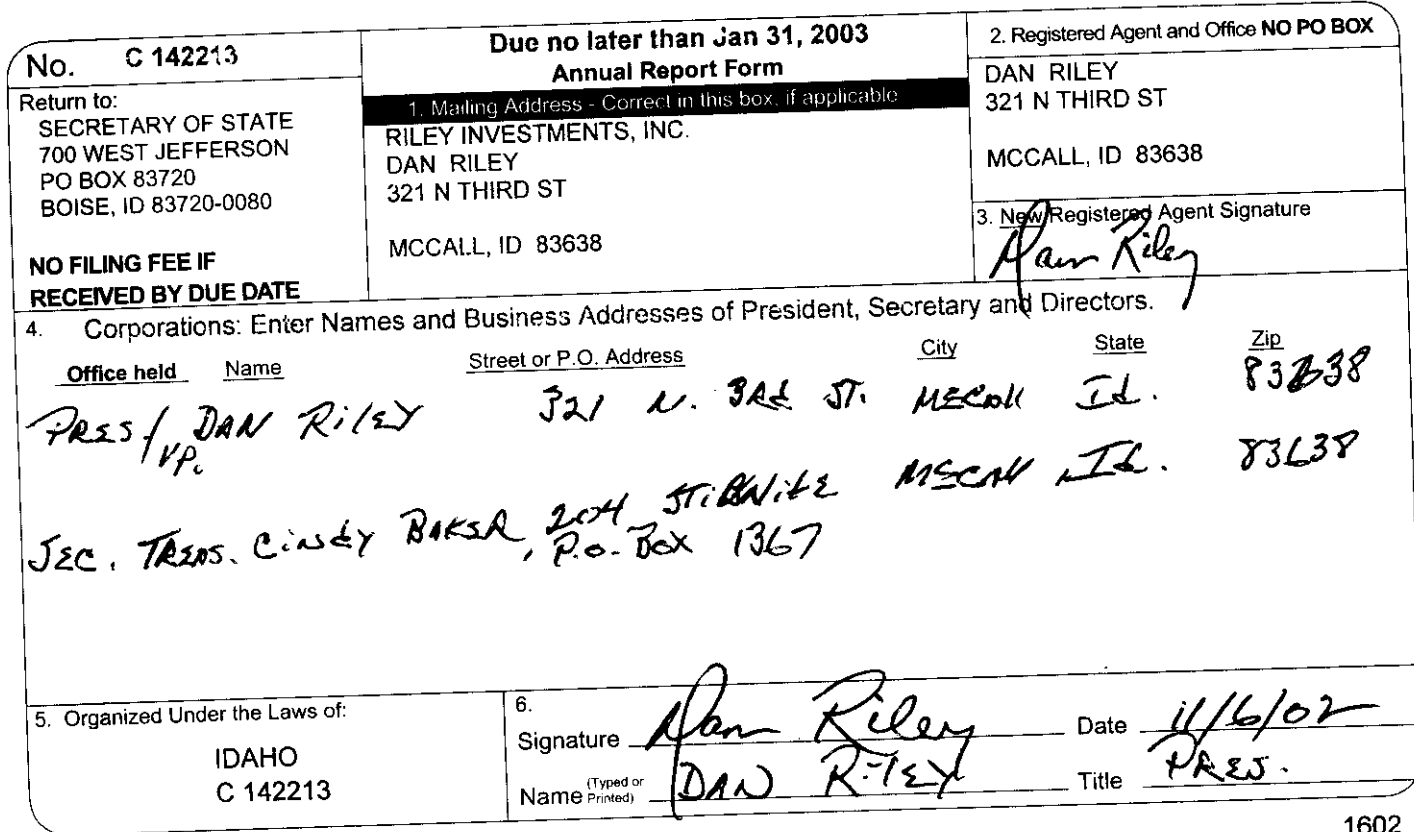 No. C 142213
Return to:
SECRETARY OF STATE
700 WEST JEFFERSON
PO BOX 83720
BOISE, ID 83720-0080
NO FILING FEE IF
RECEIVED BY DUE DATE
Due no later than Jan 31, 2003
Annual Report Form
1. Mailing Address - Correct in this box, if applicable
RILEY INVESTMENTS, INC.
DAN RILEY
321 N THIRD ST
MCCALL, ID 83638
2. Registered Agent and Office NO PO BOX
DAN RILEY
321 N THIRD ST
MCCALL, ID 83638
3. New Registered Agent Signature
Dan Riley
4. Corporations: Enter Names and Business Addresses of President, Secretary and Directors.
Office held Name Street or P.O. Address City State Zip
PRES/ VP. DAN RilEY 321 N. 3Rd ST. MCCall Id. 83638
SEC. TREAS. CindY BAKER, 204 STiBNitE MCCAll Id. 83638
, P.O. Box 1367
5. Organized Under the Laws of:
IDAHO
C 142213
6.
Signature Dan Riley Date 11/6/02
Name (Typed or Printed) DAN RilEY Title PRES.
1602